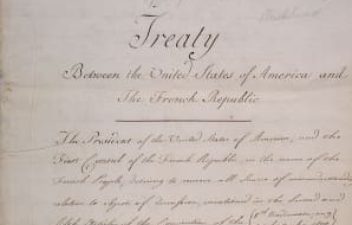 Treaty
Between the United States of America and
The French Republic
The President of the United States of America, and the
First Consul of the French Republic in the name of the
French People, desiring to remove all Source of misunderstanding
relative to objects of discussion mentioned in the Second and
fifth Articles of the Convention of the